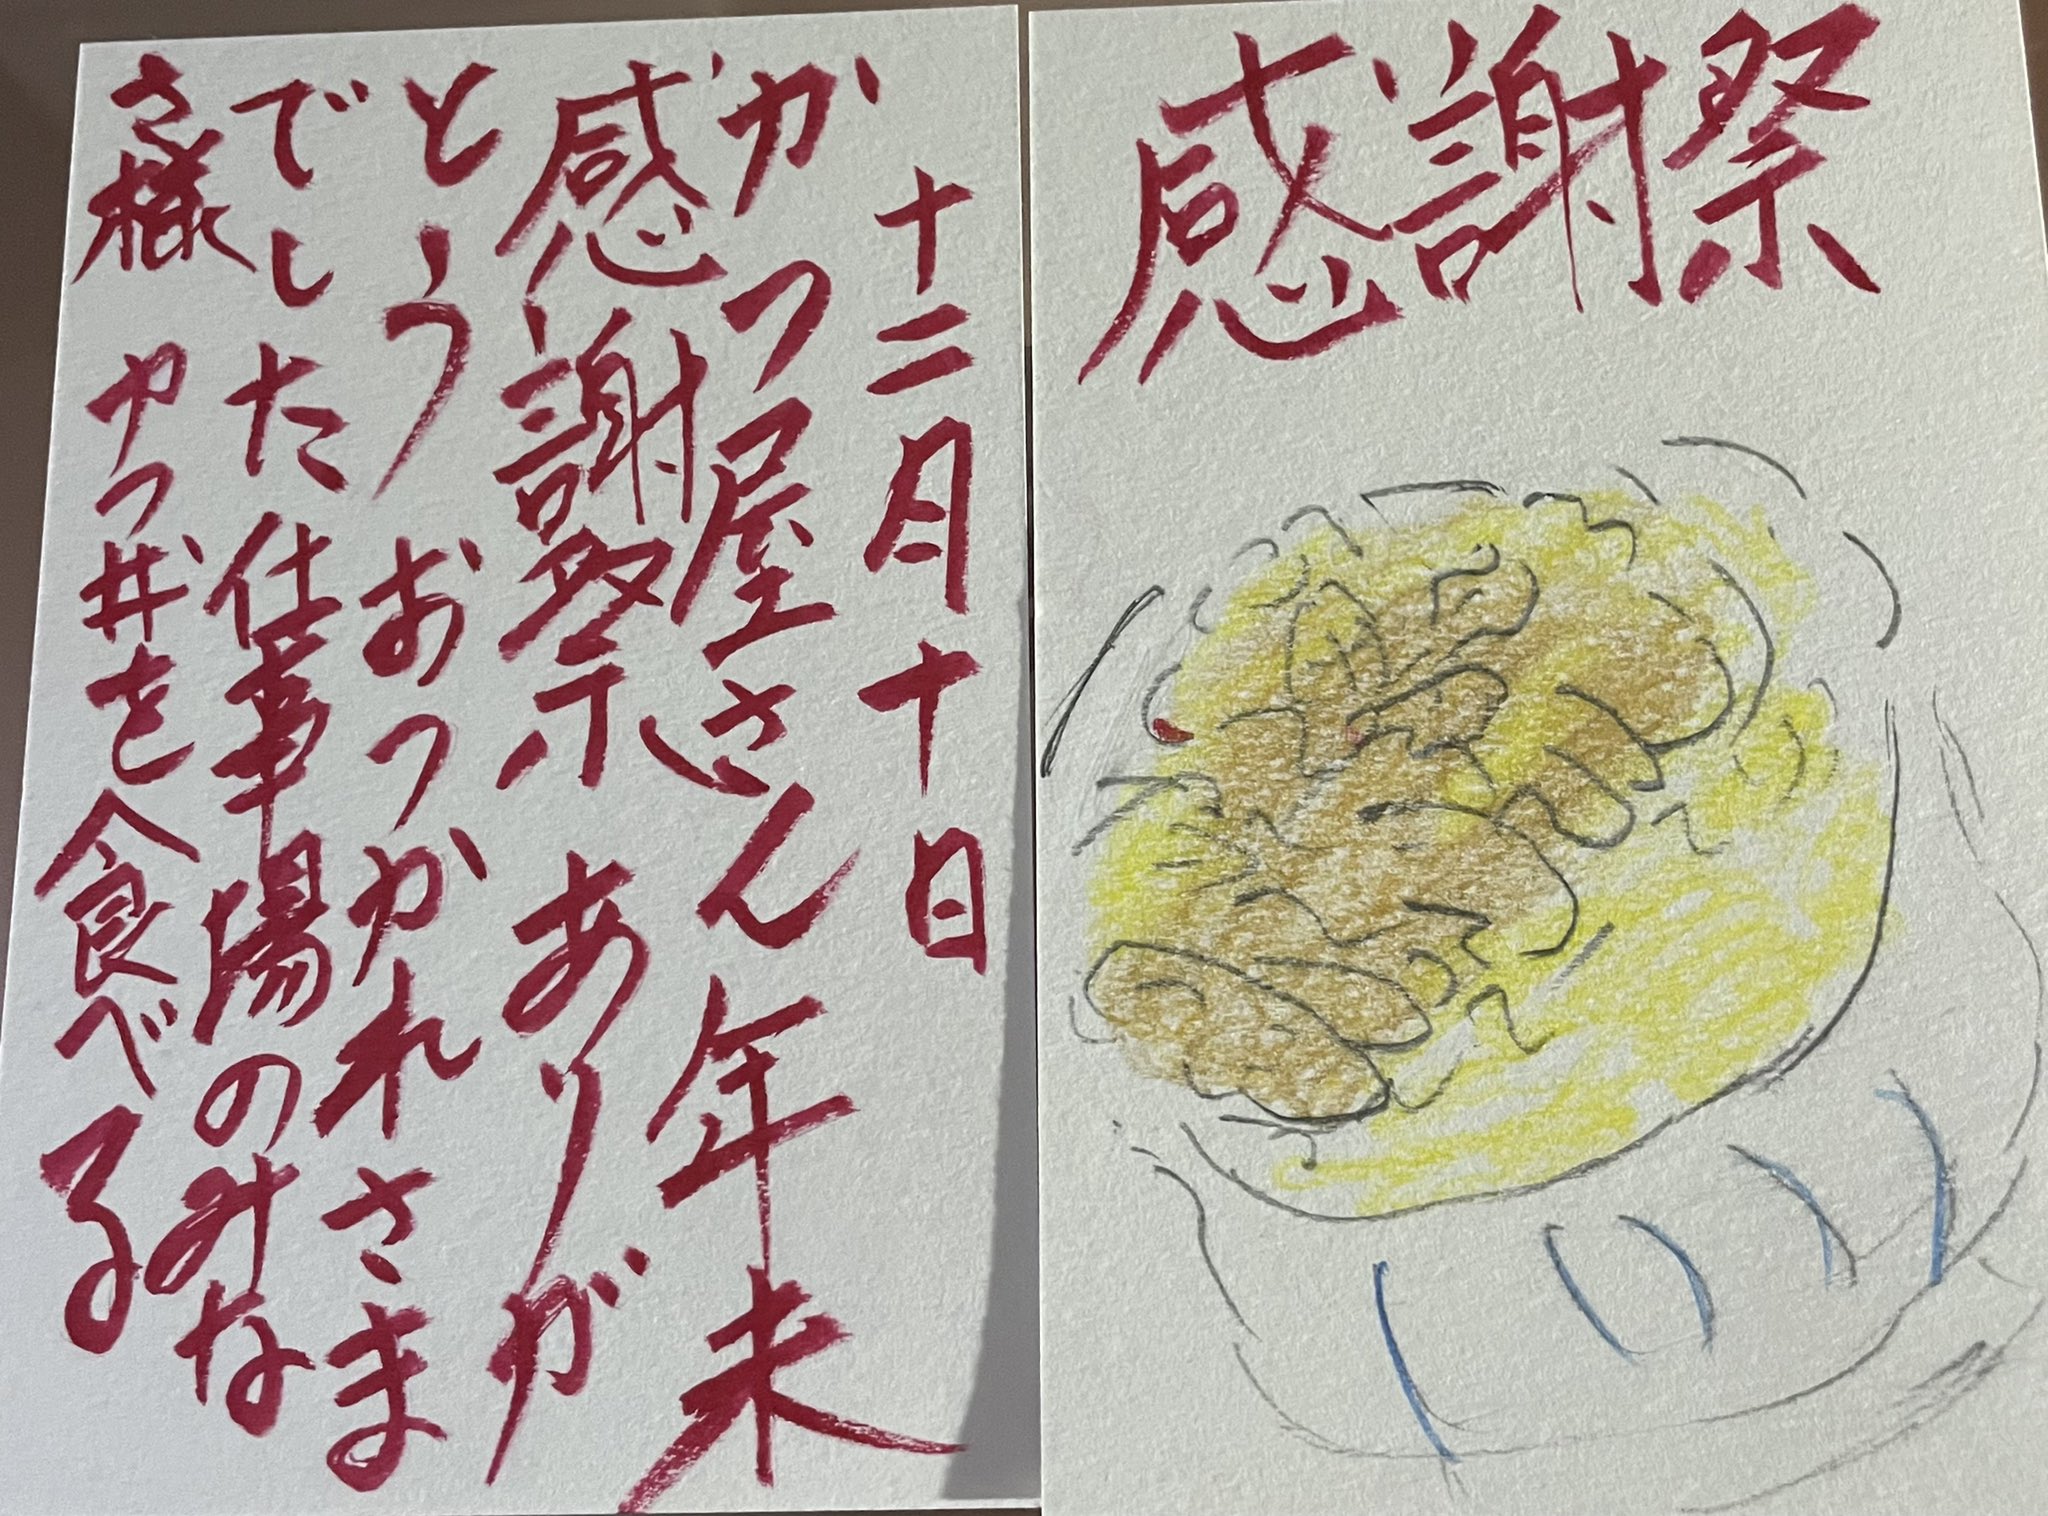 感謝祭
十二月十日
かつ屋さん年末
感謝祭 ありが
とう おつかれさま
でした 仕事場のみな
さ様 かつ丼を食べる